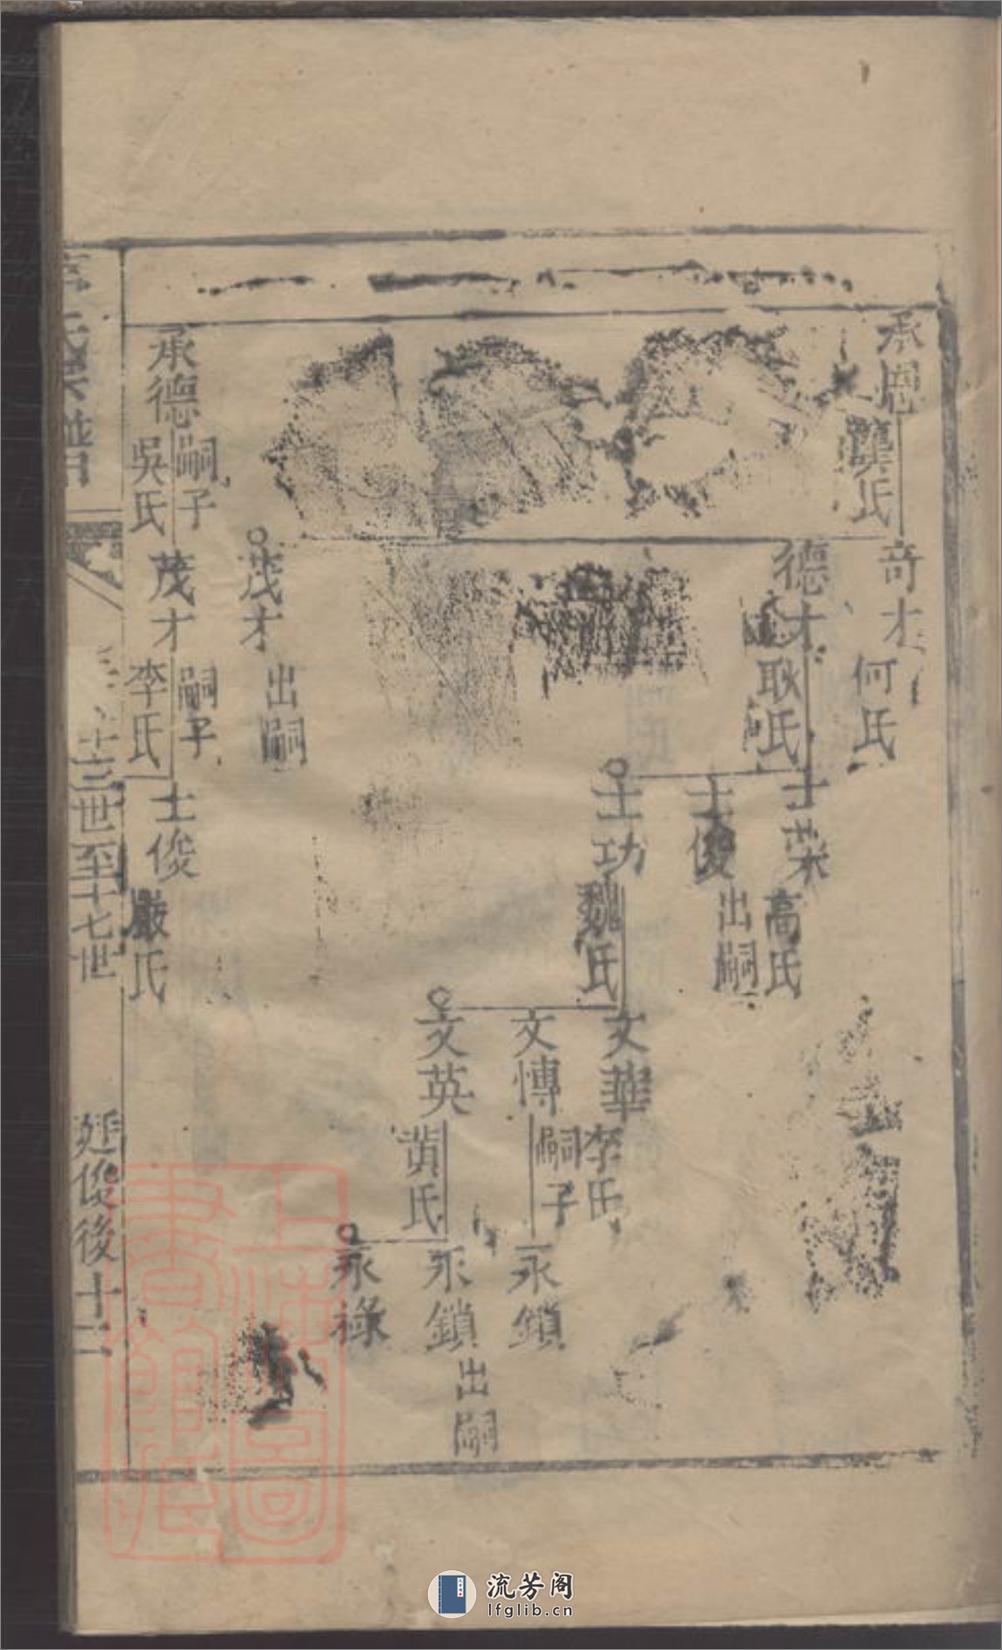 承恩
龔氏
奇才
何氏
德才
耿氏
士榮
高氏
士俊
出嗣
士功
魏氏
文華
李氏
文慱
嗣子
永鎖
文英
黃氏
永鎖
出嗣
永祿
茂才
出嗣
承德
嗣子
吳氏
茂才
嗣子
李氏
士俊
嚴氏
氏宗譜
十三世至十七世
延俊後十二
上海圖書館藏
流芳阁
lfglib.cn